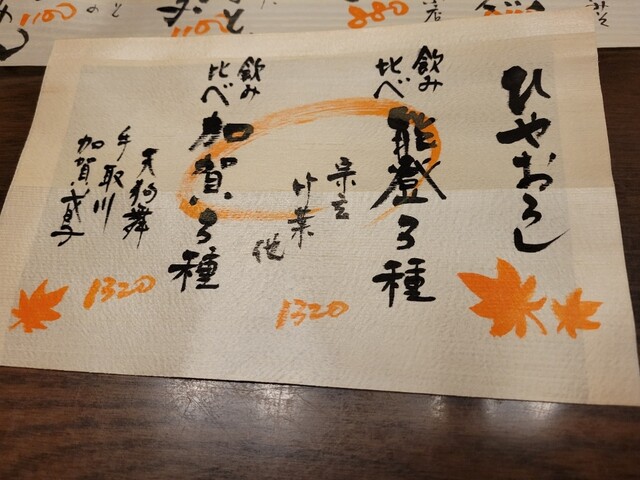 ひやおろし
飲み
比べ
能登3種
宗玄
竹葉
他
1320
飲み
比べ
加賀3種
天狗舞
手取川
加賀鳶
1320
1100
1100
880